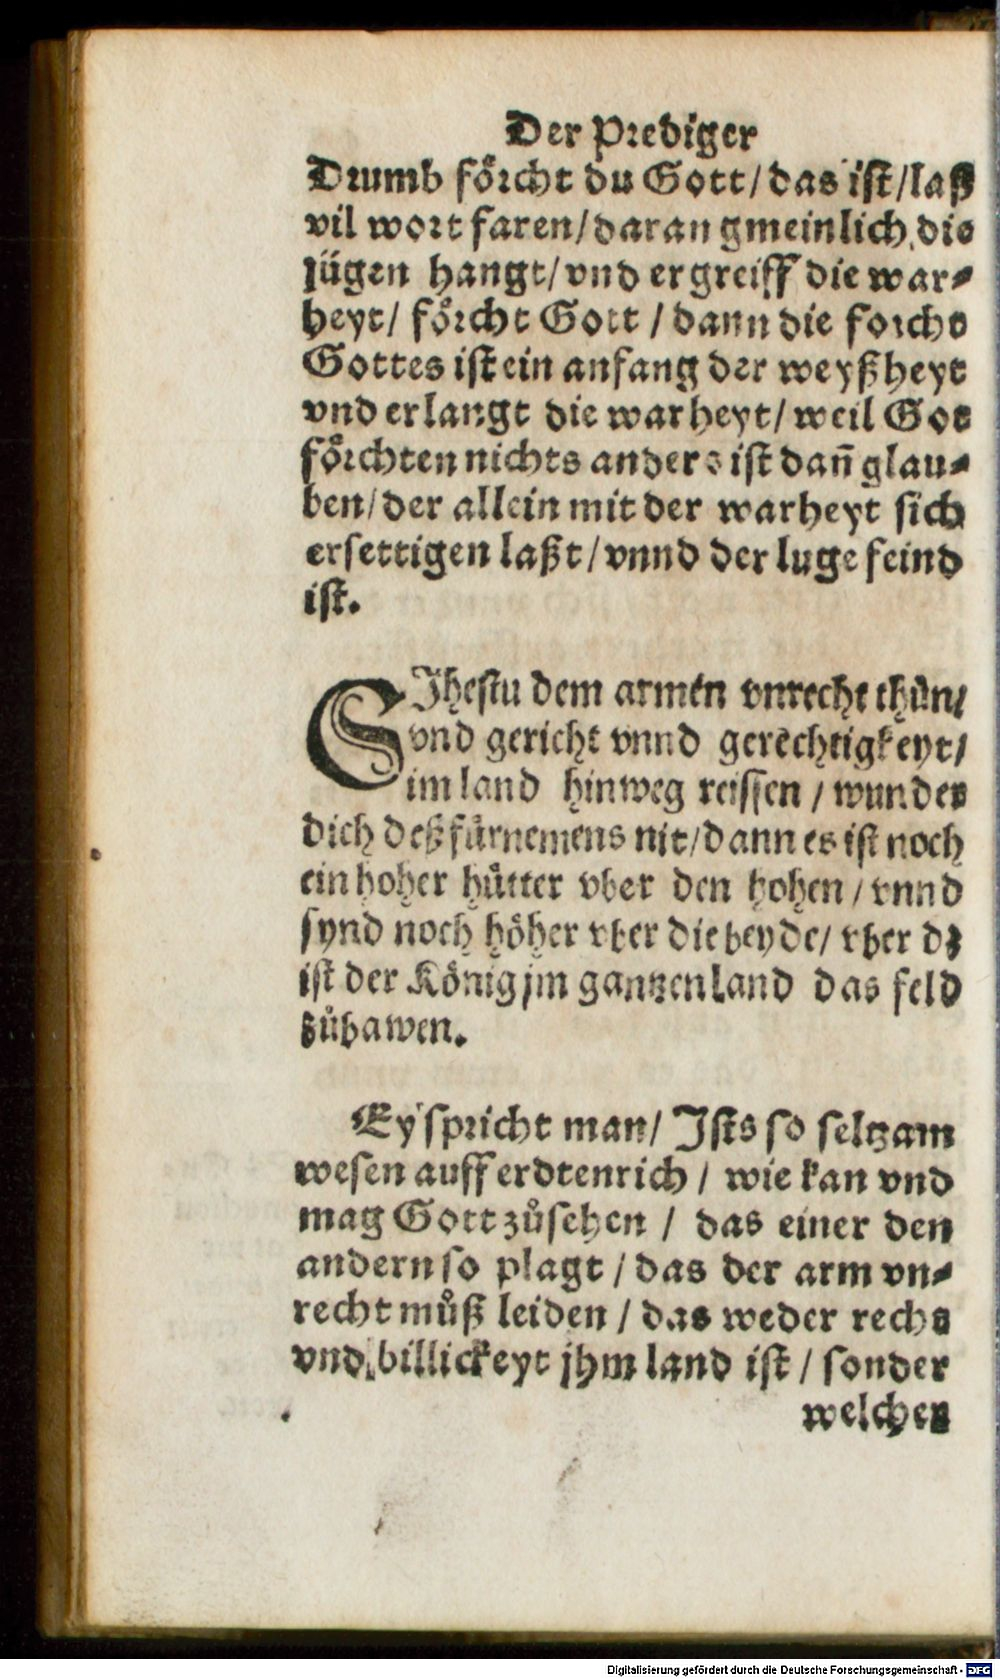 Der Prediger
Drumb foͤrcht du Gott/das ist/laß
vil wort faren/daran gmeinlich die
lügen hangt/vnd ergreiff die war⸗
heyt/ foͤrcht Gott / dann die forcht
Gottes ist ein anfang der weyßheyt
vnd erlangt die warheyt/ weil Got
foͤrchten nichts anders ist dañ glau⸗
ben/der allein mit der warheyt sich
ersettigen laßt/vnnd der luge feind
ist.
SIhestu dem armen vnrecht thuͦn/
vnd gericht vnnd gerechtigkeyt/
im land hinweg reissen / wunder
dich deß fürnemens nit/dann es ist noch
ein hoher huͤtter vber den hohen/vnnd
synd noch hoͤher vber die beyde/ vber dz
ist der Koͤnig jm gantzen land das feld
zuͦbawen.
Ey spricht man/ Ists so seltzam
wesen auff erdtenrich / wie kan vnd
mag Gott zuͦsehen / das einer den
andern so plagt/das der arm vn⸗
recht muͦß leiden / das weder recht
vnd billickeyt jhm land ist / sonder
welcher
Digitalisierung gefördert durch die Deutsche Forschungsgemeinschaft - DFG